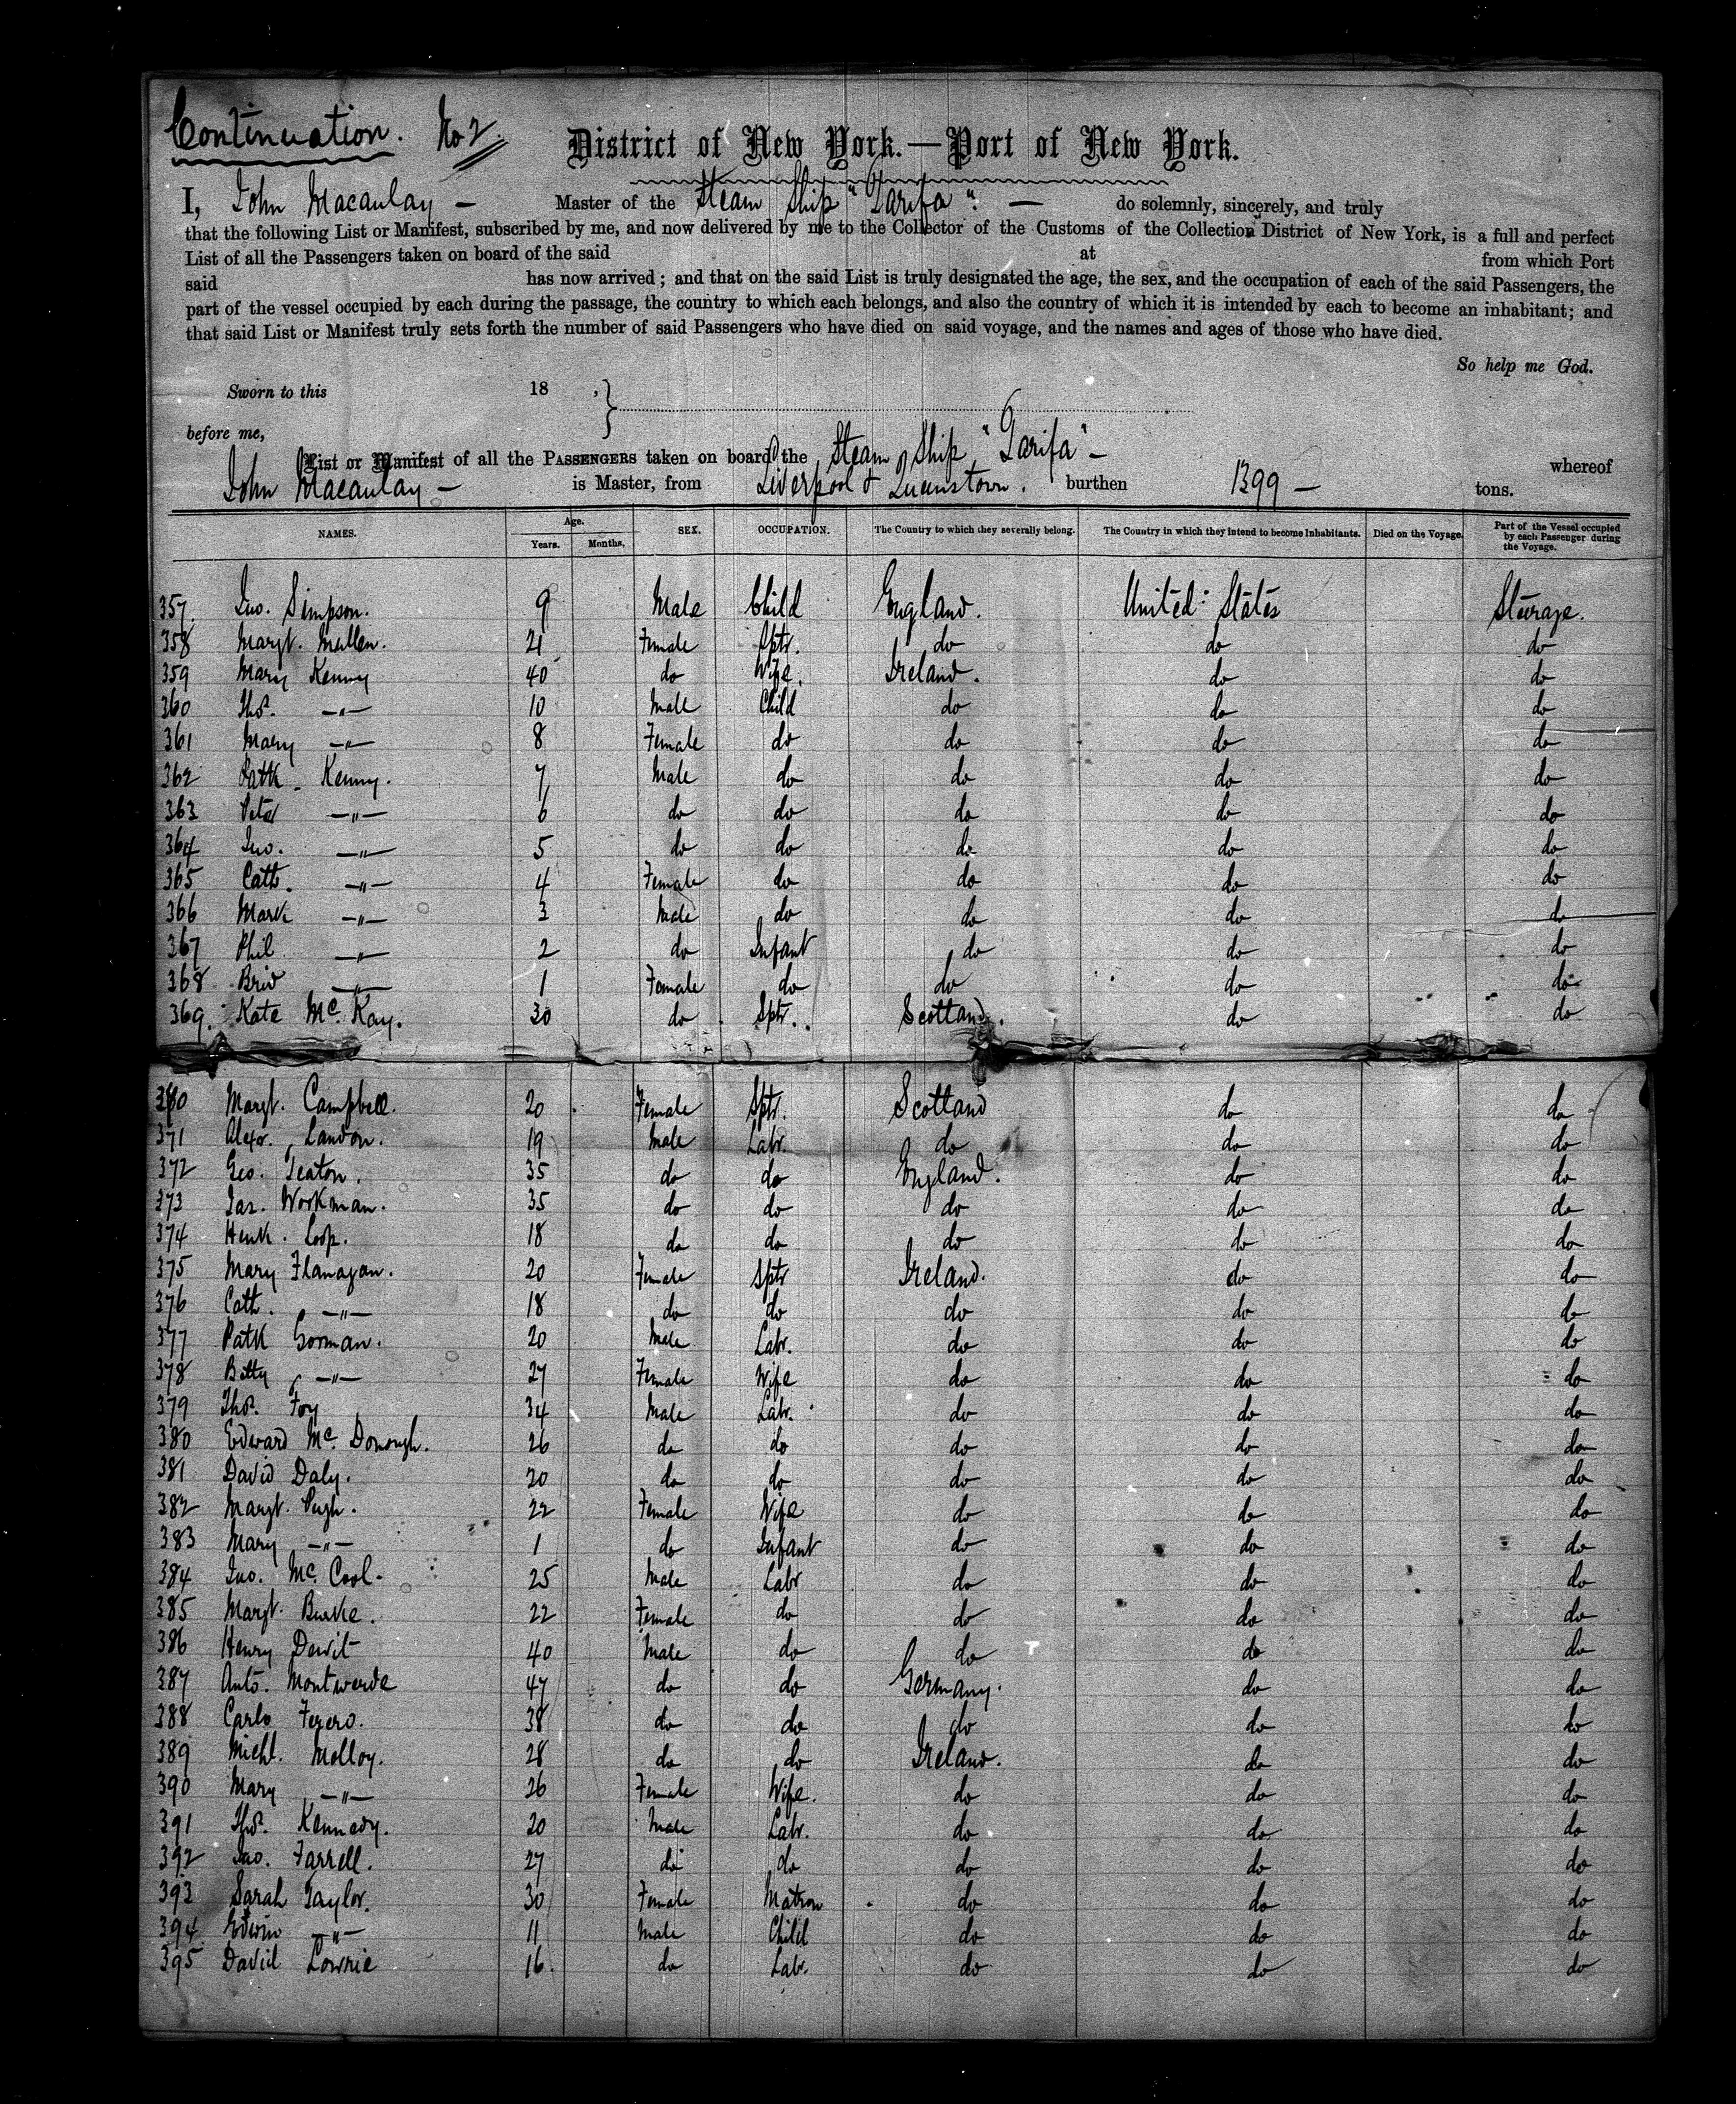 Continuation. No 2.
District of New York.—Port of New York.
I, John Macaulay — Master of the Steam Ship "Tarifa". — do solemnly, sincerely, and truly
that the following List or Manifest, subscribed by me, and now delivered by me to the Collector of the Customs of the Collection District of New York, is a full and perfect
List of all the Passengers taken on board of the said at from which Port
said has now arrived; and that on the said List is truly designated the age, the sex, and the occupation of each of the said Passengers, the
part of the vessel occupied by each during the passage, the country to which each belongs, and also the country of which it is intended by each to become an inhabitant; and
that said List or Manifest truly sets forth the number of said Passengers who have died on said voyage, and the names and ages of those who have died.
So help me God.
Sworn to this 18 ,
before me,
List or Manifest of all the PASSENGERS taken on board the Steam Ship "Tarifa" — whereof
John Macaulay — is Master, from Liverpool & Queenstown. burthen 1399 — tons.
NAMES. Age. Years. Months. SEX. OCCUPATION. The Country to which they severally belong. The Country in which they intend to become Inhabitants. Died on the Voyage. Part of the Vessel occupied by each Passenger during the Voyage.
357. Jno. Simpson. 9 Male Child England. United States Sturage.
358 Margt. Mullen. 21 Female Sptr. do do do
359 Mary Kenny 40 do Wife. Ireland. do do
360 Thos. —"— 10 Male Child do do do
361 Mary —"— 8 Female do do do do
362 Patk. Kenny. 7 Male do do do do
363 Peter —"— 6 do do do do do
364 Jno. —"— 5 do do do do do
365 Cath. —"— 4 Female do do do do
366 Mark —"— 3 Male do do do do
367 Phil —"— 2 do Infant do do do
368 Brid —"— 1 Female do do do do
369. Kate Mc. Kay. 30 do Sptr. Scotland. do do
380 Margt. Campbell. 20 Female Sptr. Scotland do do
371 Alexr. Landon. 19 Male Labr. do do do
372 Geo. Seaton. 35 do do England. do do
373 Jas. Workman. 35 do do do do do
374 Henk. Loop. 18 do do do do do
375 Mary Flanagan. 20 Female Sptr Ireland. do do
376 Cath. —"— 18 do do do do do
377 Patk Gorman. 20 Male Labr. do do do
378 Betty —"— 27 Female Wife do do do
379 Thos. Foy 34 Male Labr. do do do
380 Edward Mc. Donough. 26 do do do do do
381 David Daly. 20 do do do do do
382 Margt. Pugh. 22 Female Wife do do do
383 Mary —"— 1 do Infant do do do
384 Jno. Mc. Cool. 25 Male Labr do do do
385 Margt. Burke. 22 Female do do do do
386 Henry Devit 40 Male do do do do
387 Anto. Montverde 47 do do Germany. do do
388 Carlo Ferero. 38 do do do do do
389 Michl. Molloy. 28 do do Ireland. do do
390 Mary —"— 26 Female Wife. do do do
391 Thos. Kennedy. 20 Male Labr. do do do
392 Jno. Farrell. 27 do do do do do
393 Sarah Taylor. 30 Female Matron do do do
394 Edwin —"— 11 Male Child do do do
395 David Lowrie 16. do Labr. do do do